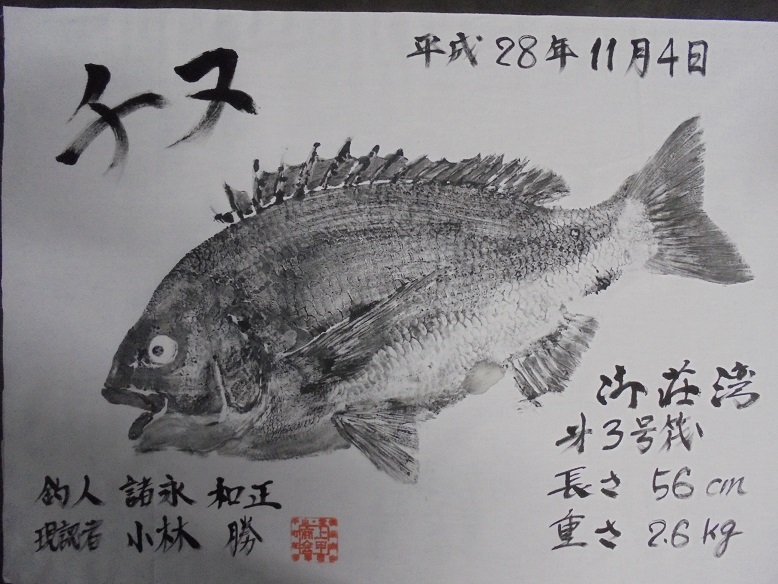 チヌ
平成28年11月4日
御荘湾
才3号筏
長さ 56cm
重さ 2.6kg
釣人 諸永 和正
現認者 小林 勝